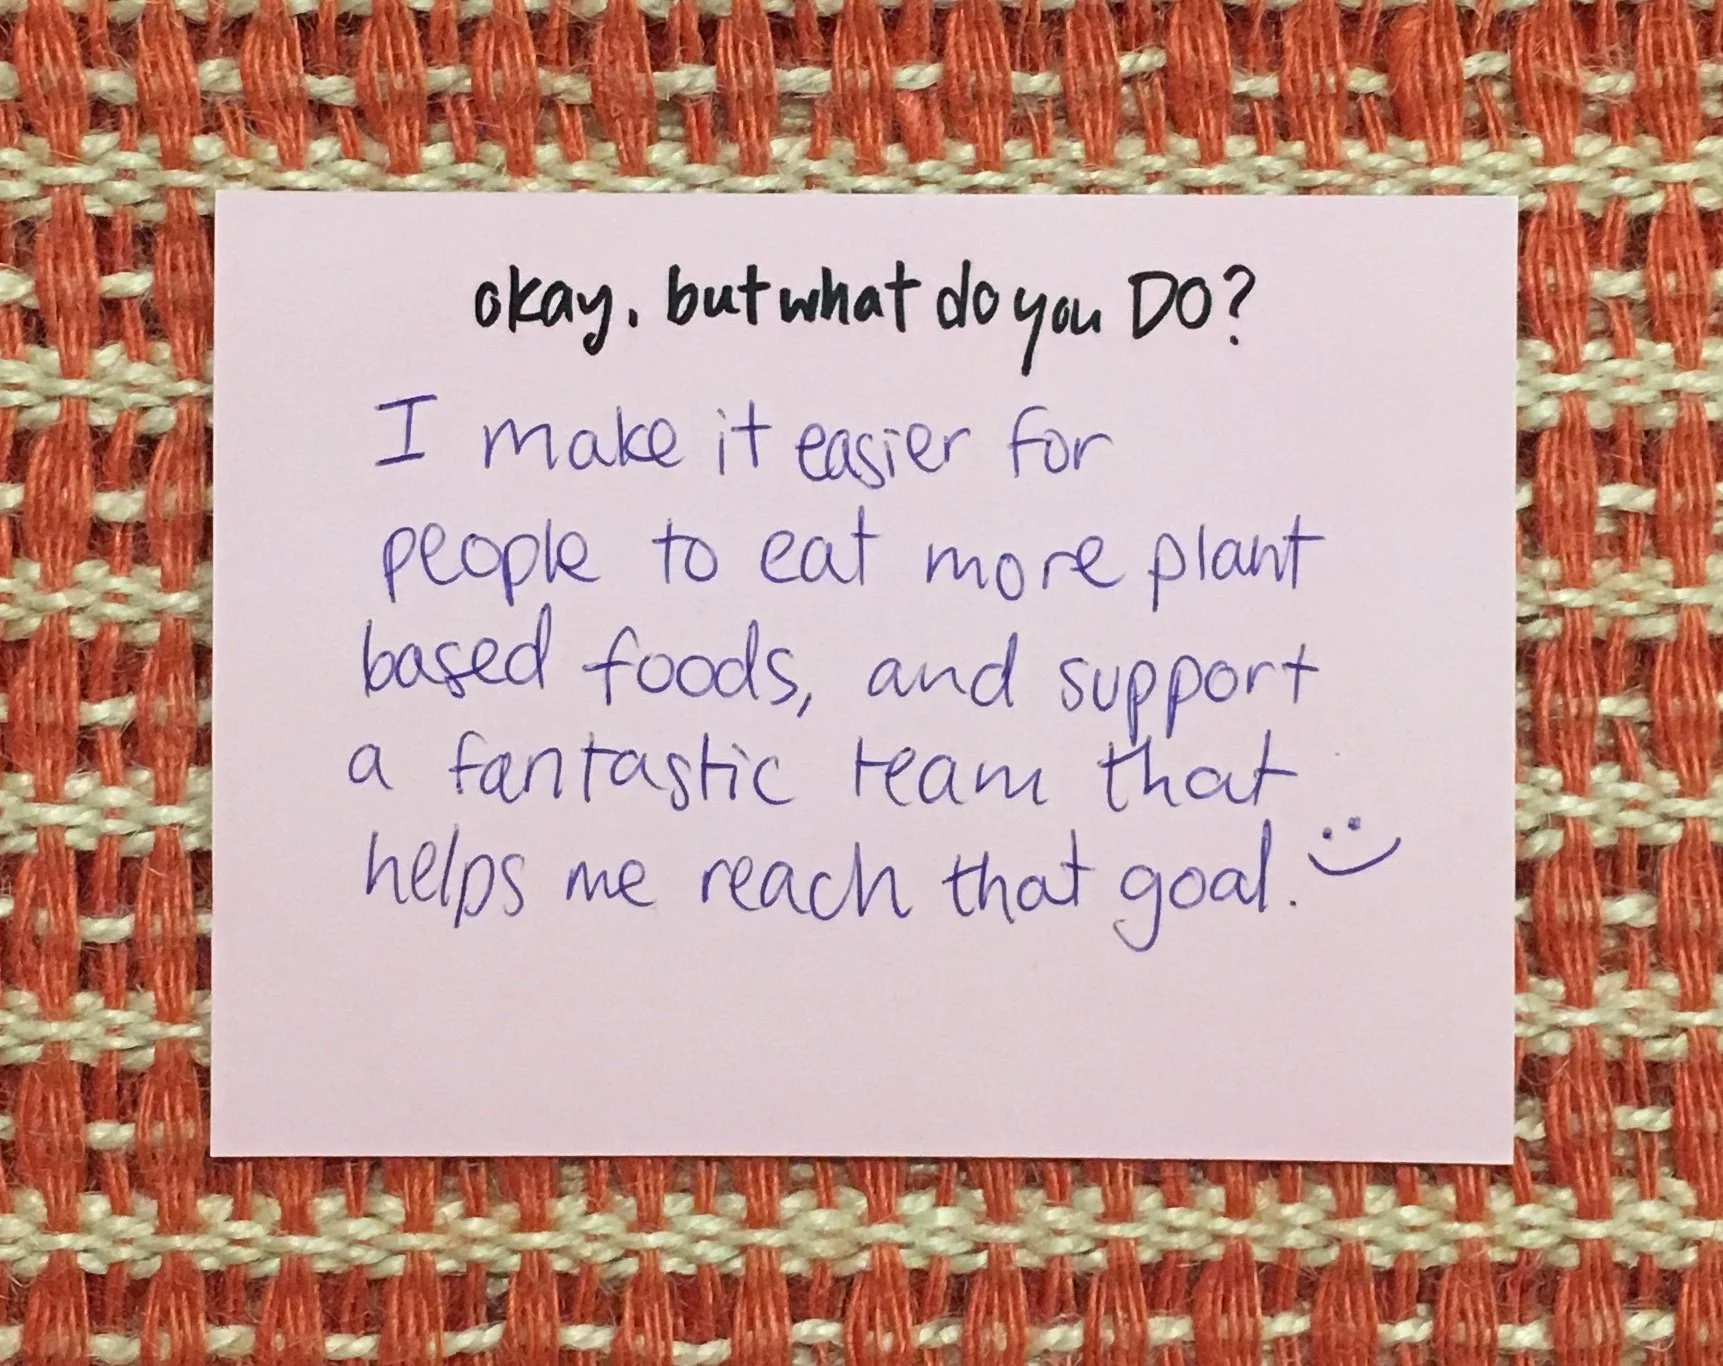 okay. but what do you DO?
I make it easier for
people to eat more plant
based foods, and support
a fantastic team that
helps me reach that goal.